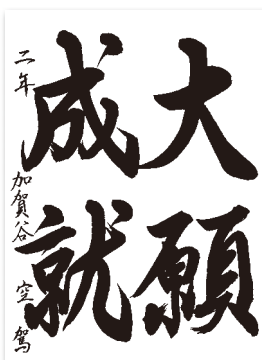 大願
成就
二年 加賀谷空駕